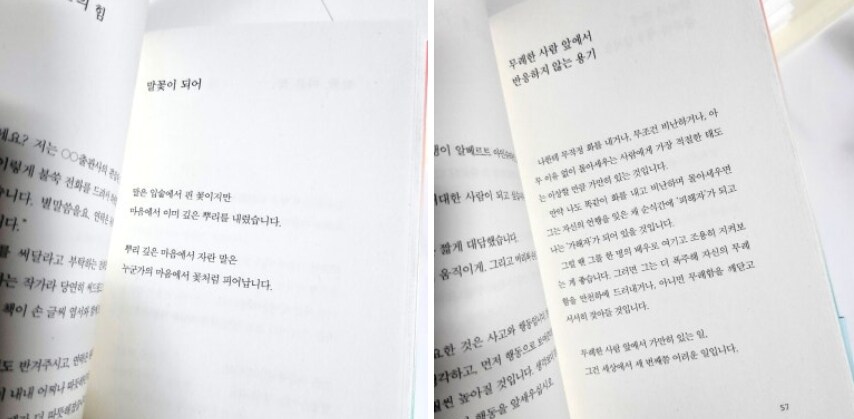 의 힘
세요? 저는 ○○출판사의
이렇게 불쑥 전화를 드려서
습니다. 별말씀을요.
니다."
를 써달라고 부탁하는
라는 작가라 당연히
책이 손 글씨
도 반겨주시고,
이 내내 어찌나
말꽃이 되어
말은 입술에서 핀 꽃이지만
마음에서 이미 깊은 뿌리를 내렸습니다.
뿌리 깊은 마음에서 자란 말은
누군가의 마음에서 꽃처럼 피어납니다.
명이 알베르트
대한 사람이 되고
짧게 대답했습니다.
움직이게. 그리고
요한 것은 사고와
각하고, 먼저 행동으로
씬 높아질 것입니다.
행동을 앞세우십시오
무례한 사람 앞에서
반응하지 않는 용기
나한테 무작정 화를 내거나, 무조건 비난하거나, 아
무 이유 없이 몰아세우는 사람에게 가장 적절한 태도
는 이상할 만큼 가만히 있는 것입니다.
만약 나도 똑같이 화를 내고 비난하며 몰아세우면
그는 자신의 언행을 잊은 채 순식간에 '피해자'가 되고
나는 '가해자'가 되어 있을 것입니다.
그럴 땐 그를 한 명의 배우로 여기고 조용히 지켜보
는 게 좋습니다. 그러면 그는 더 폭주해 자신의 무례
함을 만천하에 드러내거나, 아니면 무례함을 깨닫고
서서히 잦아들 것입니다.
무례한 사람 앞에서 가만히 있는 일,
그건 세상에서 세 번째쯤 어려운 일입니다.
57